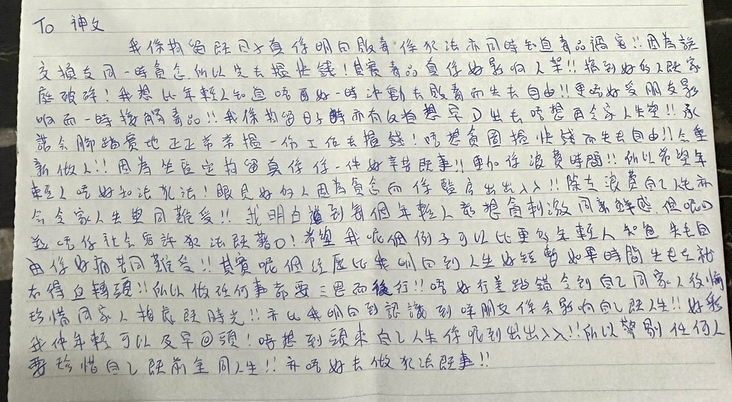 To 神父
我係拘留既日子真係明白販毒係犯法亦同時知道毒品禍害!!因為誤
交損友同一時貪念所以先去搵快錢!其實毒品真係好影响人架!!搞到好的人既家
庭破碎!我想比年輕人知道唔要好一時沖動去販毒而失去自由!!更唔好受朋友影
响而一時接觸毒品!!我係拘留日子亦有反省想早D出去唔想再令家人失望!!承
諾會腳踏實地正正常常搵一份工作去搵錢!唔想貪圖搵快錢而失去自由!!會重
新做人!!因為生活定拘留真係係一件好辛苦既事!!更加係浪費時間!!所以希望年
輕人唔好知法犯法!眼見好的人因為貪念而係監房出出入入!!除左浪費自己人生亦
會令家人失望同難受!!我明白到每個年輕人都想貪刺激同新鮮感但呢D
並唔係社會容許犯法既藉口!希望我呢個例子可以比更多年輕人知道失去自
由係好痛苦同難受!!其實呢個經歷比我明白到人生好短暫如果時間失去左就
冇得返轉頭!!所以做任何事都要三思而後行!!唔好行差踏錯令到自己同家人後悔
珍惜同家人相處既時光!!亦比我明白到認識到咩朋友係會影响自己既人生!!好彩
我仲年輕可以及早回頭!唔想到頭來自己人生係呢到出出入入!!所以警剔任何人
要珍惜自己既前途同人生!!亦唔好去做犯法既事!!